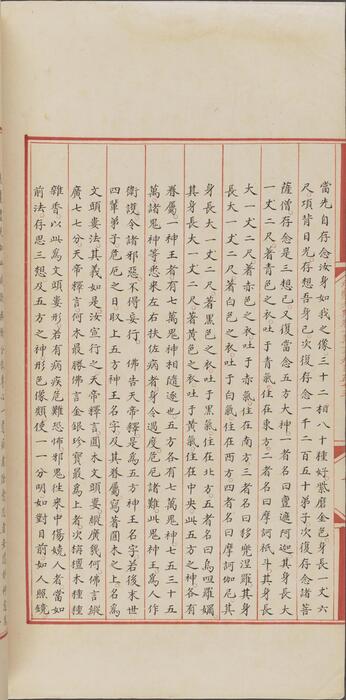 當先自存念汝身如我之像三十二相八十種好紫磨金色身長一丈六
尺項背日光存想吾身已次復存念一千二百五十弟子次復存念諸菩
薩僧存念是三想已又復當念五方大神一者名曰亶遮阿迦其身長大
一丈二尺著青色之衣吐于青氣住在東方二者名曰摩訶祇斗其身長
大一丈二尺著赤色之衣吐于赤氣住在南方三者名曰移兜涅羅其身
長大一丈二尺著白色之衣吐于白氣住在西方四者名曰摩訶伽尼其
身長大一丈二尺著黑色之衣吐于黑氣住在北方五者名曰烏呾羅嬭
其身長大一丈二尺著黃色之衣吐于黃氣住在中央此五方之神各有
眷屬一神王者有七萬鬼神相隨逐也五方各有七萬鬼神七五三十五
萬諸鬼神等悉來左右扶佐病者身令過度危厄諸難此鬼神王爲人作
衛護令諸邪惡不得妄行　佛告天帝釋是爲五方神王名字若後末世
四輩弟子危厄之日取上五方神王名字及其眷屬寫著圓木之上名爲
文頭婁法其義如是汝宣行之天帝釋言圓木文頭婁縱廣幾何佛言縱
廣七七分天帝釋言何木最勝佛言金銀珍寶最爲上者次栴檀木種種
雜香以此爲文頭婁形若有病疾危難恐怖邪鬼往來中傷嬈人者當如
前法存思三想及五方之神形色像類使一一分明如對目前如人照鏡